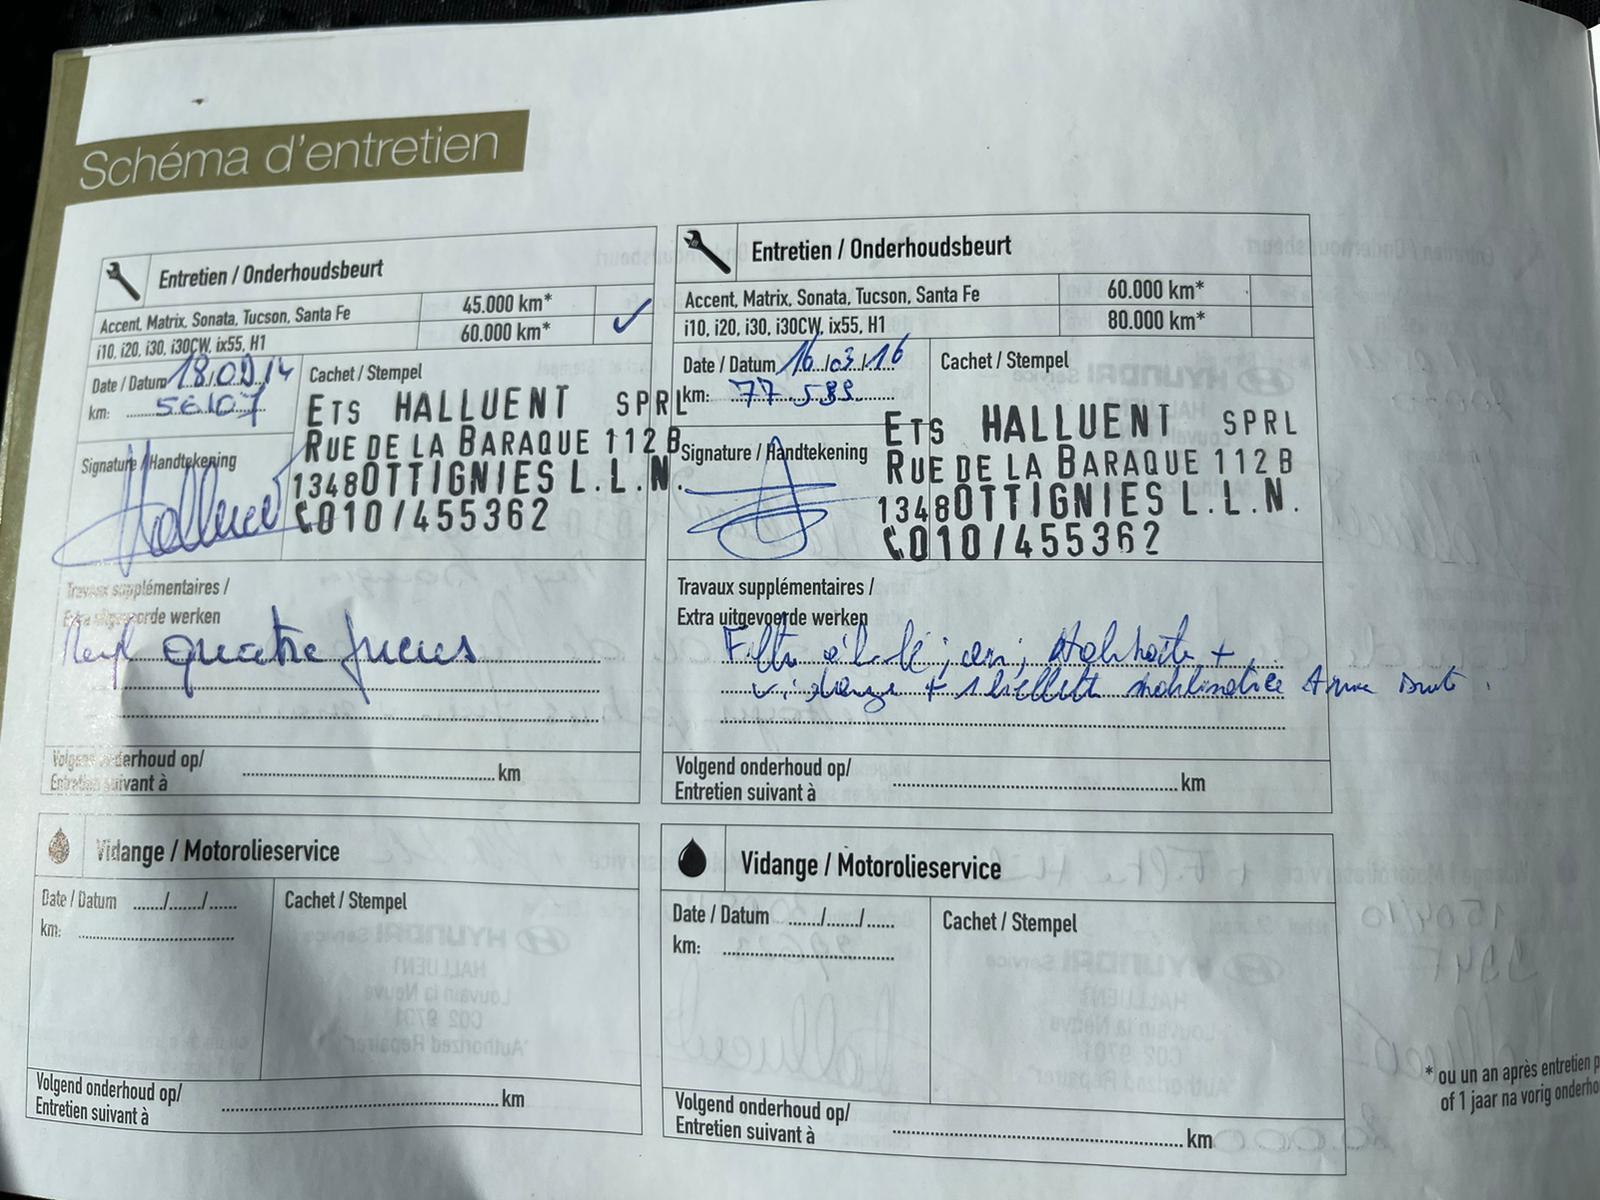 Schéma d'entretien
Entretien / Onderhoudsbeurt
Accent, Matrix, Sonata, Tucson, Santa Fe 45.000 km*
i10, i20, i30, i30CW, ix55, H1 60.000 km* ✓
Date / Datum 18/09/14
km: 56107
Cachet / Stempel
ETS HALLUENT SPRL
RUE DE LA BARAQUE 112 B
1348 OTTIGNIES L.L.N.
010/455362
Signature / Handtekening
Travaux supplémentaires /
Extra uitgevoerde werken
quatre
Volgend onderhoud op/
Entretien suivant à km
Entretien / Onderhoudsbeurt
Accent, Matrix, Sonata, Tucson, Santa Fe 60.000 km*
i10, i20, i30, i30CW, ix55, H1 80.000 km*
Date / Datum 16/03/16
km:
Cachet / Stempel
ETS HALLUENT SPRL
RUE DE LA BARAQUE 112 B
1348 OTTIGNIES L.L.N.
010/455362
Signature / Handtekening
Travaux supplémentaires /
Extra uitgevoerde werken
+
+
Volgend onderhoud op/
Entretien suivant à km
Vidange / Motorolieservice
Date / Datum ....../....../......
km:
Cachet / Stempel
Volgend onderhoud op/
Entretien suivant à km
Vidange / Motorolieservice
Date / Datum ....../....../......
km:
Cachet / Stempel
Volgend onderhoud op/
Entretien suivant à km
* ou un an après entretien
of 1 jaar na vorig